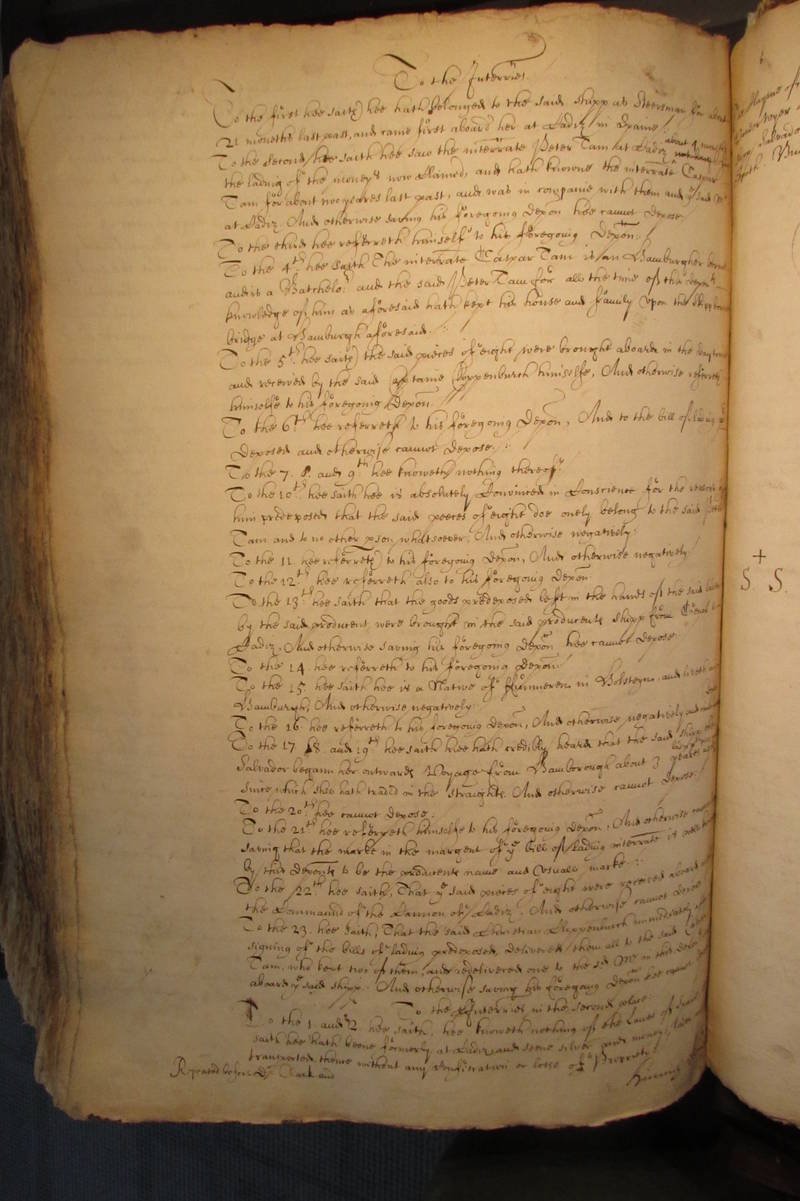 To the Interries.
To the first hee saith hee hath belonged to the said shipp as Steersman for about
21 moneths last past, and came first aboard her at Cadiz in Spaine.
To the second hee saith hee saw the interrate Peter Tam at Cadiz about
the lading of the moneys now claimed, and hath knowne the interrate Caspar
Tam for about two yeares last past, and was in companie with them and ye said
at Cadiz. And otherwise saving his foregoing depon hee cannot depose.
To the third hee referreth himself to his foregoing depon:
To the 4th. hee saith The interrate Caspar Tam is an Hamburgher borne
and is a Batchelor. and the said Peter Tam for all the time of this deponts
knowledge of him as aforesaid hath kept his house and family upon the
bridge at Hamburgh aforesaid.
To the 5th. hee saith the said pieces of eight were brought aboard in the
and received by the said Captaine himselfe, And otherwise referreth
himselfe to his foregoing depon
To the 6th hee referreth to his foregoing depon, And to the bill of lading
deposed and otherwise cannot depose.
To the 7. 8. and 9th hee knoweth nothing thereof.
To the 10th hee saith hee is absolutely convinced in Conscience for the reasons
him predeposed that the said peeces of eight doe onely belong to the said Peter
Tam and to no other pson whatsoever, And otherwise negatively.
To the 11. hee referreth to his foregoing depon, And otherwise negatively
To the 12th hee referreth also to his foregoing depon
To the 13th hee saith that the goods predeposed left in the hands of the said
by the said producent were brought in the said producents shipp from
Cadiz, And otherwise saving his foregoing depon hee cannot depose
To the 14 hee referreth to his foregoing depon.
To the 15. hee saith hee is a Native of in Holsteyne, and liveth
Hamburgh, And otherwise negatively.
To the 16. hee referreth to his foregoing depon, And otherwise negatively
To the 17 18. and 19th hee saith hee hath credibly heard that the said shipp
Salvador began her outwards Voyage from Hamborough about 3 yeares
since, which shee hath traded in the straights. And otherwise cannot depose.
To the 20th hee cannot depose.
To the 21th hee referreth himselfe to his foregoing depon, And otherwise
saving that the marke in the margent of ye bill of lading interrate is
by this deponts to be the producents name and usuall marke.
To the 22th. hee saith, That ye said pieces of eight were received aboard
the Command of the Cannon of Cadiz, And otherwise cannot depose
To the 23. hee saith, That the said Christian immediately
signing of the bills of lading predeposed, delivered them all to the said
Tam, who kept two of them, and redelivered one to the sd Mr
aboard ye said shipp. And otherwise saving his foregoing depon hee
To the Interries in the second place
To the 1 and 2. hee saith, hee knoweth nothing of the Lawes of
saith hee hath beene formerly at Cadiz, and seene silver and money
transported thence without any confiscation or losse of Proprety.
Repeated before Dr. Clark